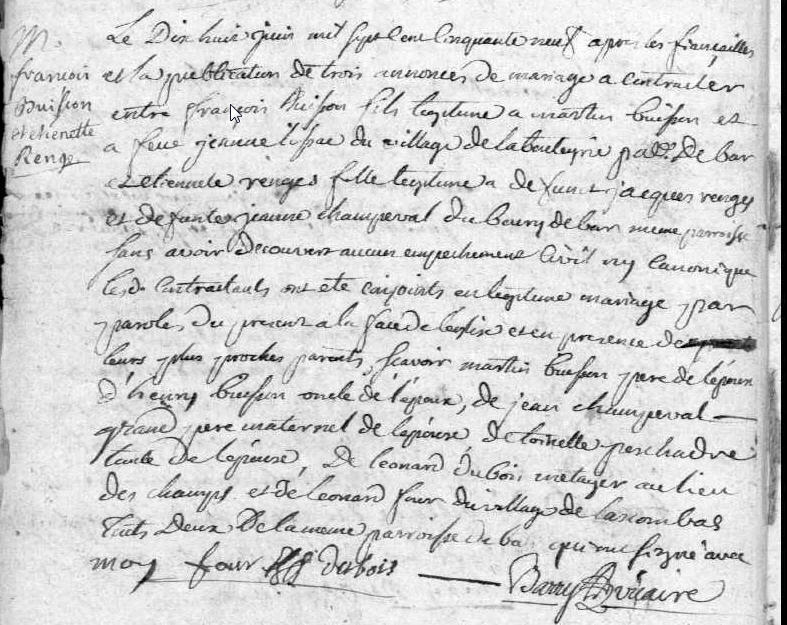 M.
françois
Buisson
et etienette
Renge
Le Dix huit juin mil sept cent cinquante neuf apres les fiançailles
et la publication de trois annonces de mariage a contracter
entre françois Buisson fils legitime a martin buisson et
a feue jeanne tissac du village de la bouteyrie par. De bar
et etiennete renges fille legitime a defunt jacques renges
et defunte jeanne champeval du bourg de bar meme parroisse
sans avoir decouvert aucun empechement Civil ny Canonique
lesd. Contractants ont ete conjoints en legitime mariage par
paroles du present a la face de leglise et en presence de
leurs plus proches parents, scavoir martin buisson pere de lepoux
d'henry buisson oncle de l'epoux, de jean champeval
grand pere maternel de lepouse, de toinette peschadre
tante de lepouse, De leonard dubois metayer au lieu
des champs et de leonard four du village de lacombas
touts Deux De la meme parroisse de bar qui ont signé avec
moy four dubois Barry vicaire